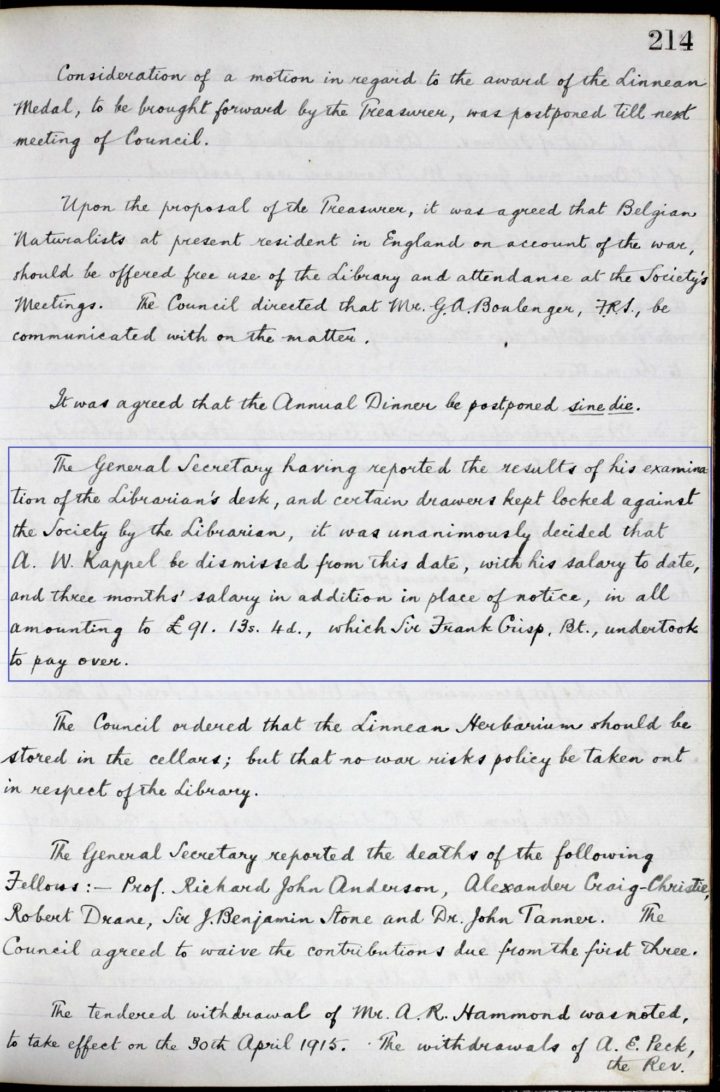 214
Consideration of a motion in regard to the award of the Linnean
Medal, to be brought forward by the Treasurer, was postponed till next
meeting of Council.
Upon the proposal of the Treasurer, it was agreed that Belgian
Naturalists at present resident in England on account of the war,
should be offered free use of the Library and attendance at the Society's
Meetings. The Council directed that Mr. G. A. Boulenger, F.R.S., be
communicated with on the matter.
It was agreed that the Annual Dinner be postponed sine die.
The General Secretary having reported the results of his examina
tion of the Librarian's desk, and certain drawers kept locked against
the Society by the Librarian, it was unanimously decided that
A. W. Kappel be dismissed from this date, with his salary to date,
and three months' salary in addition in place of notice, in all
amounting to £91. 13s. 4d., which Sir Frank Crisp, Bt., undertook
to pay over.
The Council ordered that the Linnean Herbarium should be
stored in the cellars; but that no war risks policy be taken out
in respect of the Library.
The General Secretary reported the deaths of the following
Fellows:— Prof. Richard John Anderson, Alexander Craig-Christie,
Robert Drane, Sir J. Benjamin Stone and Dr. John Tanner. The
Council agreed to waive the contributions due from the first three.
The tendered withdrawal of Mr. A. R. Hammond was noted,
to take effect on the 30th April 1915. The withdrawals of A. E. Peck,
the Rev.